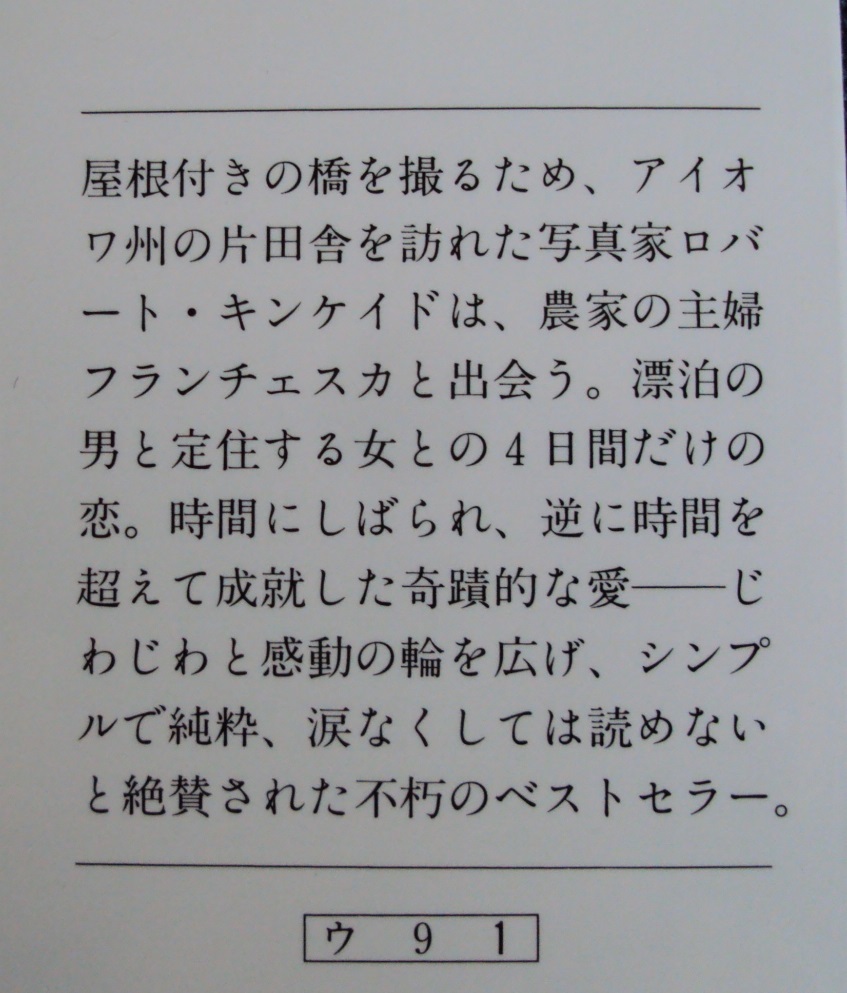 屋根付きの橋を撮るため、アイオ
ワ州の片田舎を訪れた写真家ロバ
ート・キンケイドは、農家の主婦
フランチェスカと出会う。漂泊の
男と定住する女との4日間だけの
恋。時間にしばられ、逆に時間を
超えて成就した奇蹟的な愛――じ
わじわと感動の輪を広げ、シンプ
ルで純粋、涙なくしては読めない
と絶賛された不朽のベストセラー。
ウ 9 1